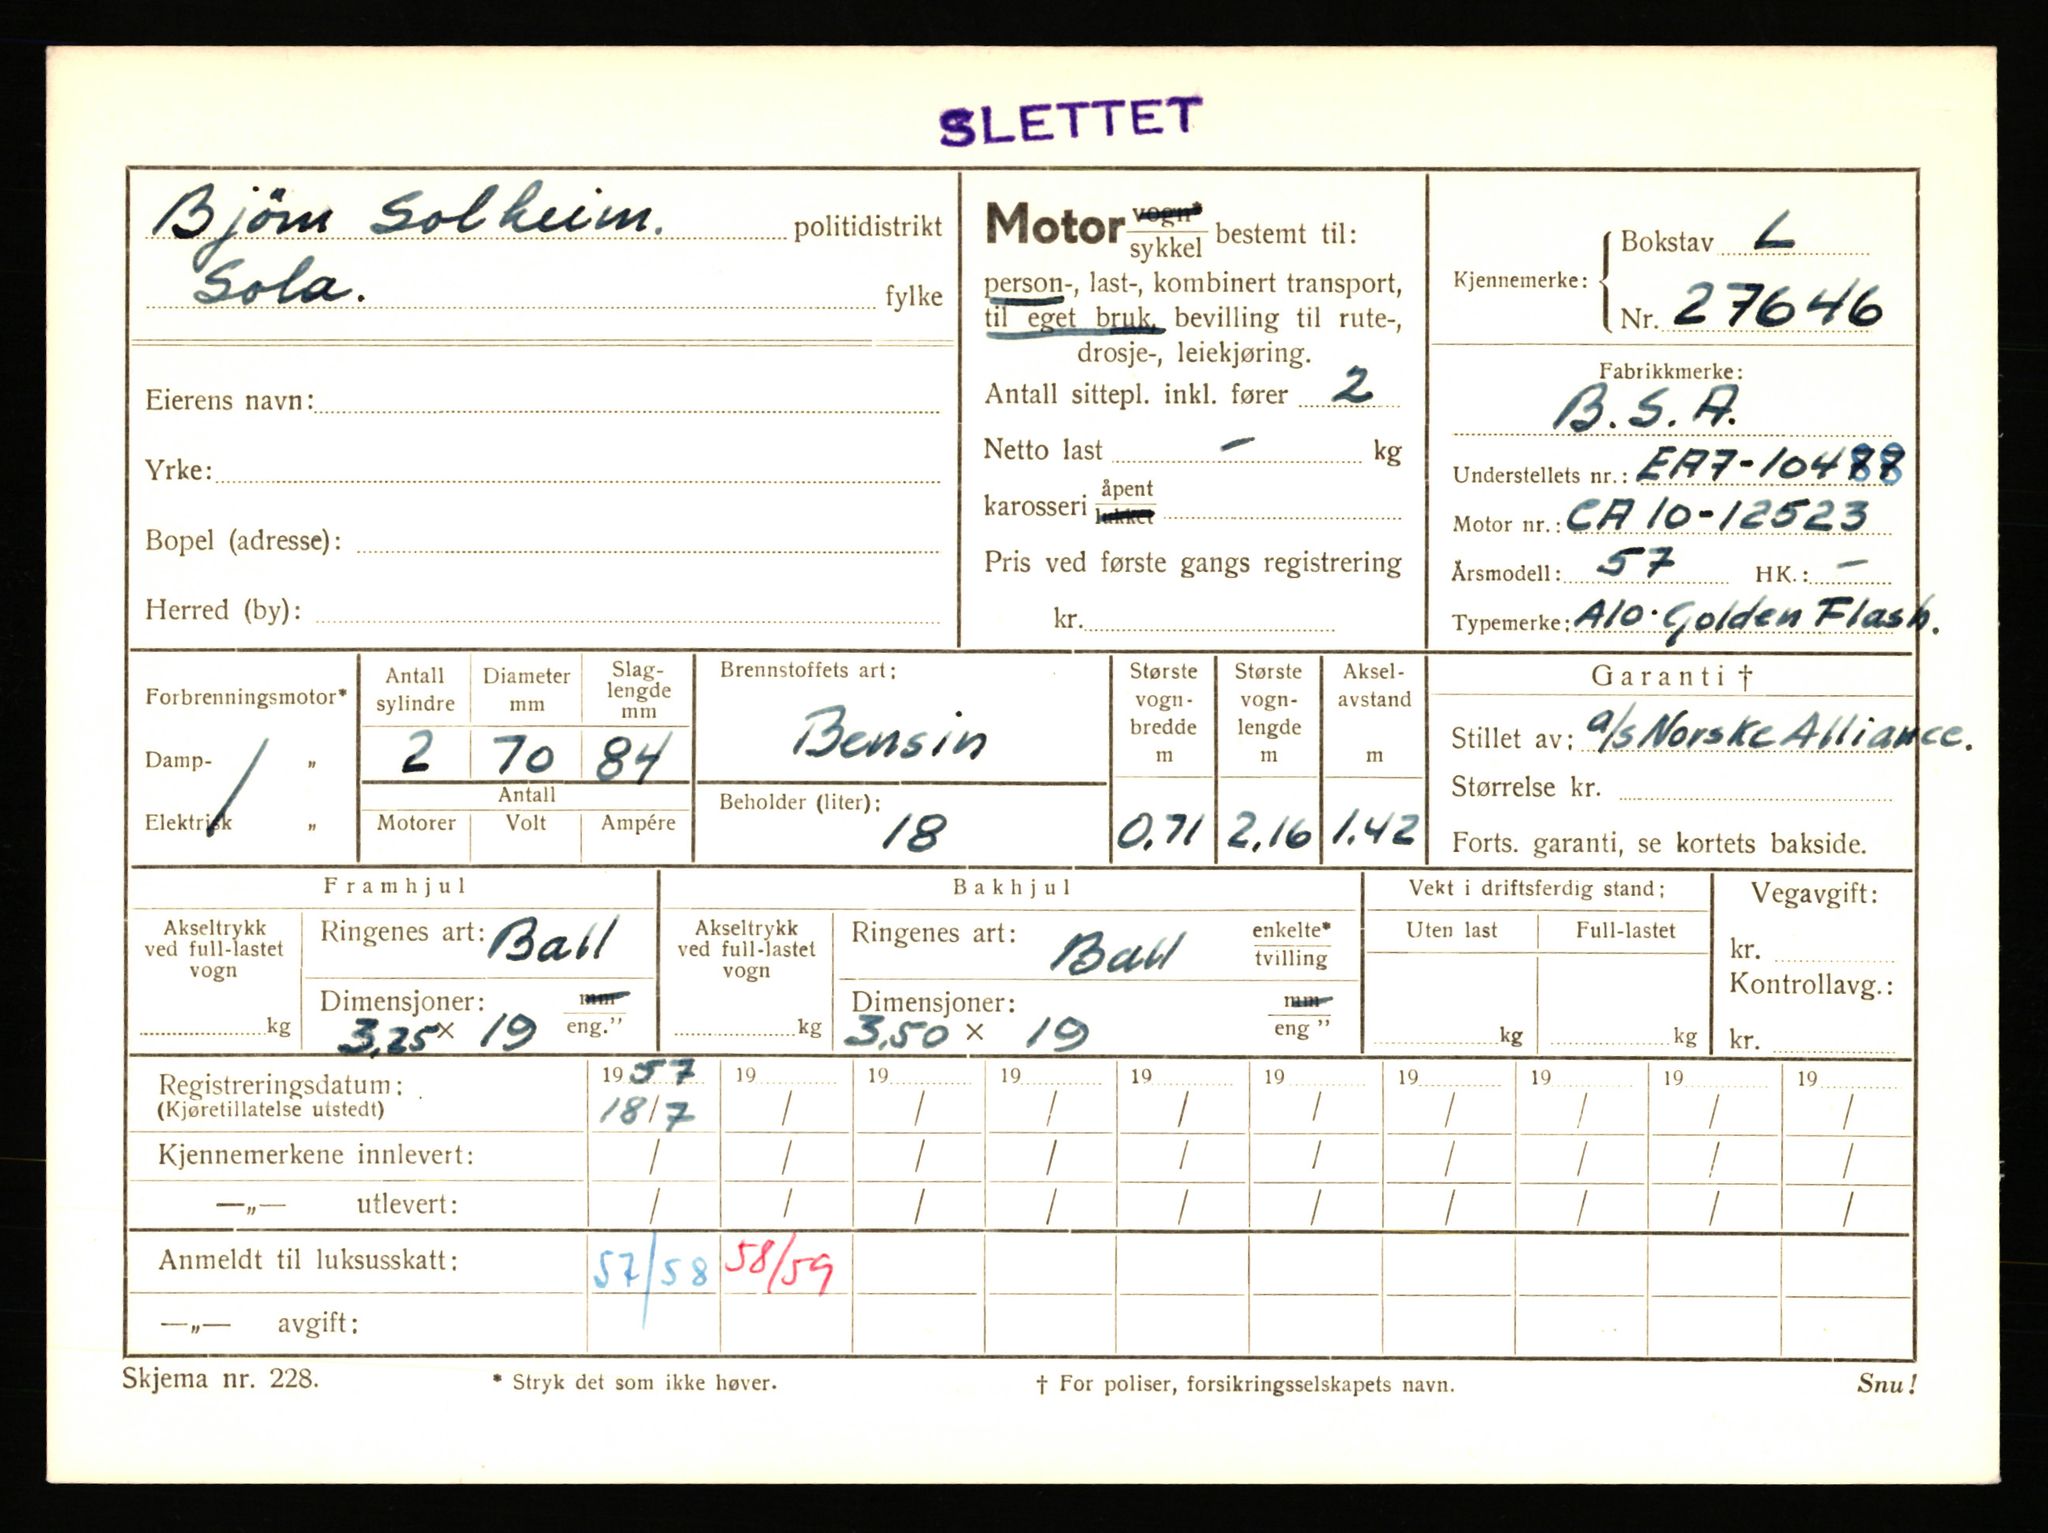 SLETTET
Bjørn Solheim. politidistrikt
Sola. fylke
Eierens navn:
Yrke:
Bopel (adresse):
Herred (by):
Motor vogn* sykkel bestemt til:
person-, last-, kombinert transport,
til eget bruk, bevilling til rute-,
drosje-, leiekjøring.
Antall sittepl. inkl. fører 2
Netto last - kg
karosseri åpent lukket
Pris ved første gangs registrering
kr.
Kjennemerke: Bokstav L
Nr. 27646
Fabrikkmerke:
B.S.A.
Understellets nr.: EA7-10488
Motor nr.: CA10-12523
Årsmodell: 57 HK.: -
Typemerke: A10. Golden Flash.
Forbrenningsmotor*
Damp- "
Elektrisk "
Antall sylindre Diameter mm Slag-lengde mm
2 70 84
Antall
Motorer Volt Ampére
Brennstoffets art:
Bensin
Beholder (liter):
18
Største vogn-bredde m
0,71
Største vogn-lengde m
2,16
Aksel-avstand m
1.42
Garanti †
Stillet av: a/s Norske Alliance.
Størrelse kr.
Forts. garanti, se kortets bakside.
Framhjul
Akseltrykk ved full-lastet vogn
kg
Ringenes art: Ball
Dimensjoner: mm
3,25 x 19 eng."
Bakhjul
Akseltrykk ved full-lastet vogn
kg
Ringenes art: Ball enkelte* tvilling
Dimensjoner: mm
3,50 x 19 eng "
Vekt i driftsferdig stand:
Uten last Full-lastet
kg kg
Vegavgift:
kr.
Kontrollavg.:
kr.
Registreringsdatum: 1957 19 19 19 19 19 19 19 19 19
(Kjøretillatelse utstedt) 18/7 / / / / / / / / /
Kjennemerkene innlevert: / / / / / / / / / /
—„— utlevert: / / / / / / / / / /
Anmeldt til luksusskatt: 57/58 58/59
—„— avgift:
Skjema nr. 228. * Stryk det som ikke høver. † For poliser, forsikringsselskapets navn. Snu!